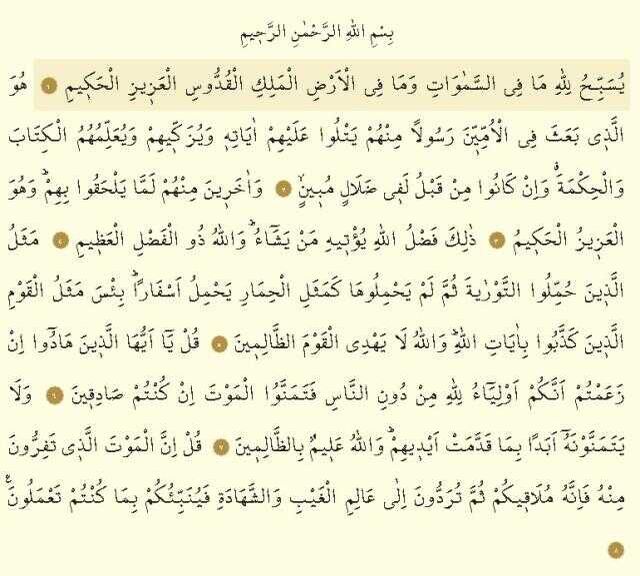 بِسْمِ اللّٰهِ الرَّحْمٰنِ الرَّح۪يمِ
يُسَبِّحُ لِلّٰهِ مَا فِي السَّمٰوَاتِ وَمَا فِي الْاَرْضِ الْمَلِكِ الْقُدُّوسِ الْعَز۪يزِ الْحَك۪يمِ ١ هُوَ
الَّذ۪ي بَعَثَ فِي الْاُمِّيّ۪نَ رَسُولاً مِنْهُمْ يَتْلُوا عَلَيْهِمْ اٰيَاتِه۪ وَيُزَكّ۪يهِمْ وَيُعَلِّمُهُمُ الْكِتَابَ
وَالْحِكْمَةَۗ وَاِنْ كَانُوا مِنْ قَبْلُ لَف۪ي ضَلَالٍ مُب۪ينٍۙ ٢ وَاٰخَر۪ينَ مِنْهُمْ لَمَّا يَلْحَقُوا بِهِمْۜ وَهُوَ
الْعَز۪يزُ الْحَك۪يمُ ٣ ذٰلِكَ فَضْلُ اللّٰهِ يُؤْت۪يهِ مَنْ يَشَٓاءُۜ وَاللّٰهُ ذُو الْفَضْلِ الْعَظ۪يمِ ٤ مَثَلُ
الَّذ۪ينَ حُمِّلُوا التَّوْرٰيةَ ثُمَّ لَمْ يَحْمِلُوهَا كَمَثَلِ الْحِمَارِ يَحْمِلُ اَسْفَاراًۜ بِئْسَ مَثَلُ الْقَوْمِ
الَّذ۪ينَ كَذَّبُوا بِاٰيَاتِ اللّٰهِۜ وَاللّٰهُ لَا يَهْدِي الْقَوْمَ الظَّالِم۪ينَ ٥ قُلْ يَٓا اَيُّهَا الَّذ۪ينَ هَادُٓوا اِنْ
زَعَمْتُمْ اَنَّكُمْ اَوْلِيَٓاءُ لِلّٰهِ مِنْ دُونِ النَّاسِ فَتَمَنَّوُا الْمَوْتَ اِنْ كُنْتُمْ صَادِق۪ينَ ٦ وَلَا
يَتَمَنَّوْنَهُٓ اَبَداً بِمَا قَدَّمَتْ اَيْد۪يهِمْۜ وَاللّٰهُ عَل۪يمٌ بِالظَّالِم۪ينَ ٧ قُلْ اِنَّ الْمَوْتَ الَّذ۪ي تَفِرُّونَ
مِنْهُ فَاِنَّهُ مُلَاق۪يكُمْ ثُمَّ تُرَدُّونَ اِلٰى عَالِمِ الْغَيْبِ وَالشَّهَادَةِ فَيُنَبِّئُكُمْ بِمَا كُنْتُمْ تَعْمَلُونَ۟
٨